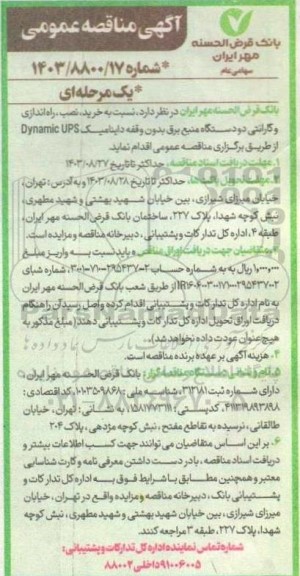 آگهی مناقصه عمومی
بانک قرض الحسنه
مهر ایران
سهامی عام
*شماره ۱۴۰۳/۸۸۰۰/۱۷
*یک مرحله‌ای
بانک قرض الحسنه مهر ایران در نظر دارد، نسبت به خرید، نصب، راه‌اندازی
و گارانتی دو دستگاه منبع برق بدون وقفه داینامیک Dynamic UPS
از طریق برگزاری مناقصه عمومی اقدام نماید.
۱. مهلت دریافت اسناد مناقصه: حداکثر تا تاریخ ۱۴۰۳/۰۸/۲۷
حداکثر تا تاریخ ۱۴۰۳/۰۸/۲۸ و به آدرس: تهران،
خیابان میرزای شیرازی، بین خیابان شهید بهشتی و شهید مطهری،
نبش کوچه شهدا، پلاک ۲۲۷، ساختمان بانک قرض الحسنه مهر ایران،
طبقه ۳، اداره کل تدارکات و پشتیبانی، دبیرخانه مناقصه و مزایده است.
متقاضیان جهت دریافت اوراق مناقصه باید نسبت به واریز مبلغ
ریال به شماره حساب
از طریق شعب بانک قرض الحسنه مهر ایران
به نام اداره کل تدارکات و پشتیبانی اقدام کرده و اصل رسید آن را هنگام
دریافت اوراق تحویل اداره کل تدارکات و پشتیبانی دهند (مبلغ مذکور به
هیچ عنوان عودت داده نخواهد شد).
۴. هزینه آگهی بر عهده برنده مناقصه است.
۵. نام و نشانی دستگاه مناقصه‌گزار: بانک قرض الحسنه مهر ایران
دارای شماره ثبت ، شناسه ملی ، کد اقتصادی:
، کدپستی: به نشانی: تهران، خیابان
طالقانی، نرسیده به تقاطع مفتح، نبش کوچه مژدهی، پلاک ۲۰۴
۶. بر این اساس متقاضیان می‌توانند جهت کسب اطلاعات بیشتر و
دریافت اسناد مناقصه، با در دست داشتن معرفی نامه و کارت شناسایی
معتبر و همچنین مطابق با شرایط فوق به اداره کل تدارکات و
پشتیبانی بانک، دبیرخانه مناقصه و مزایده واقع در تهران، خیابان
میرزای شیرازی، بین خیابان شهید بهشتی و شهید مطهری، نبش کوچه
شهدا، پلاک ۲۲۷، طبقه ۳ مراجعه کنند.
شماره تماس نماینده اداره کل تدارکات و پشتیبانی:
۹۱۰۰۶۰۰۵ داخلی ۸۸۰۰۲